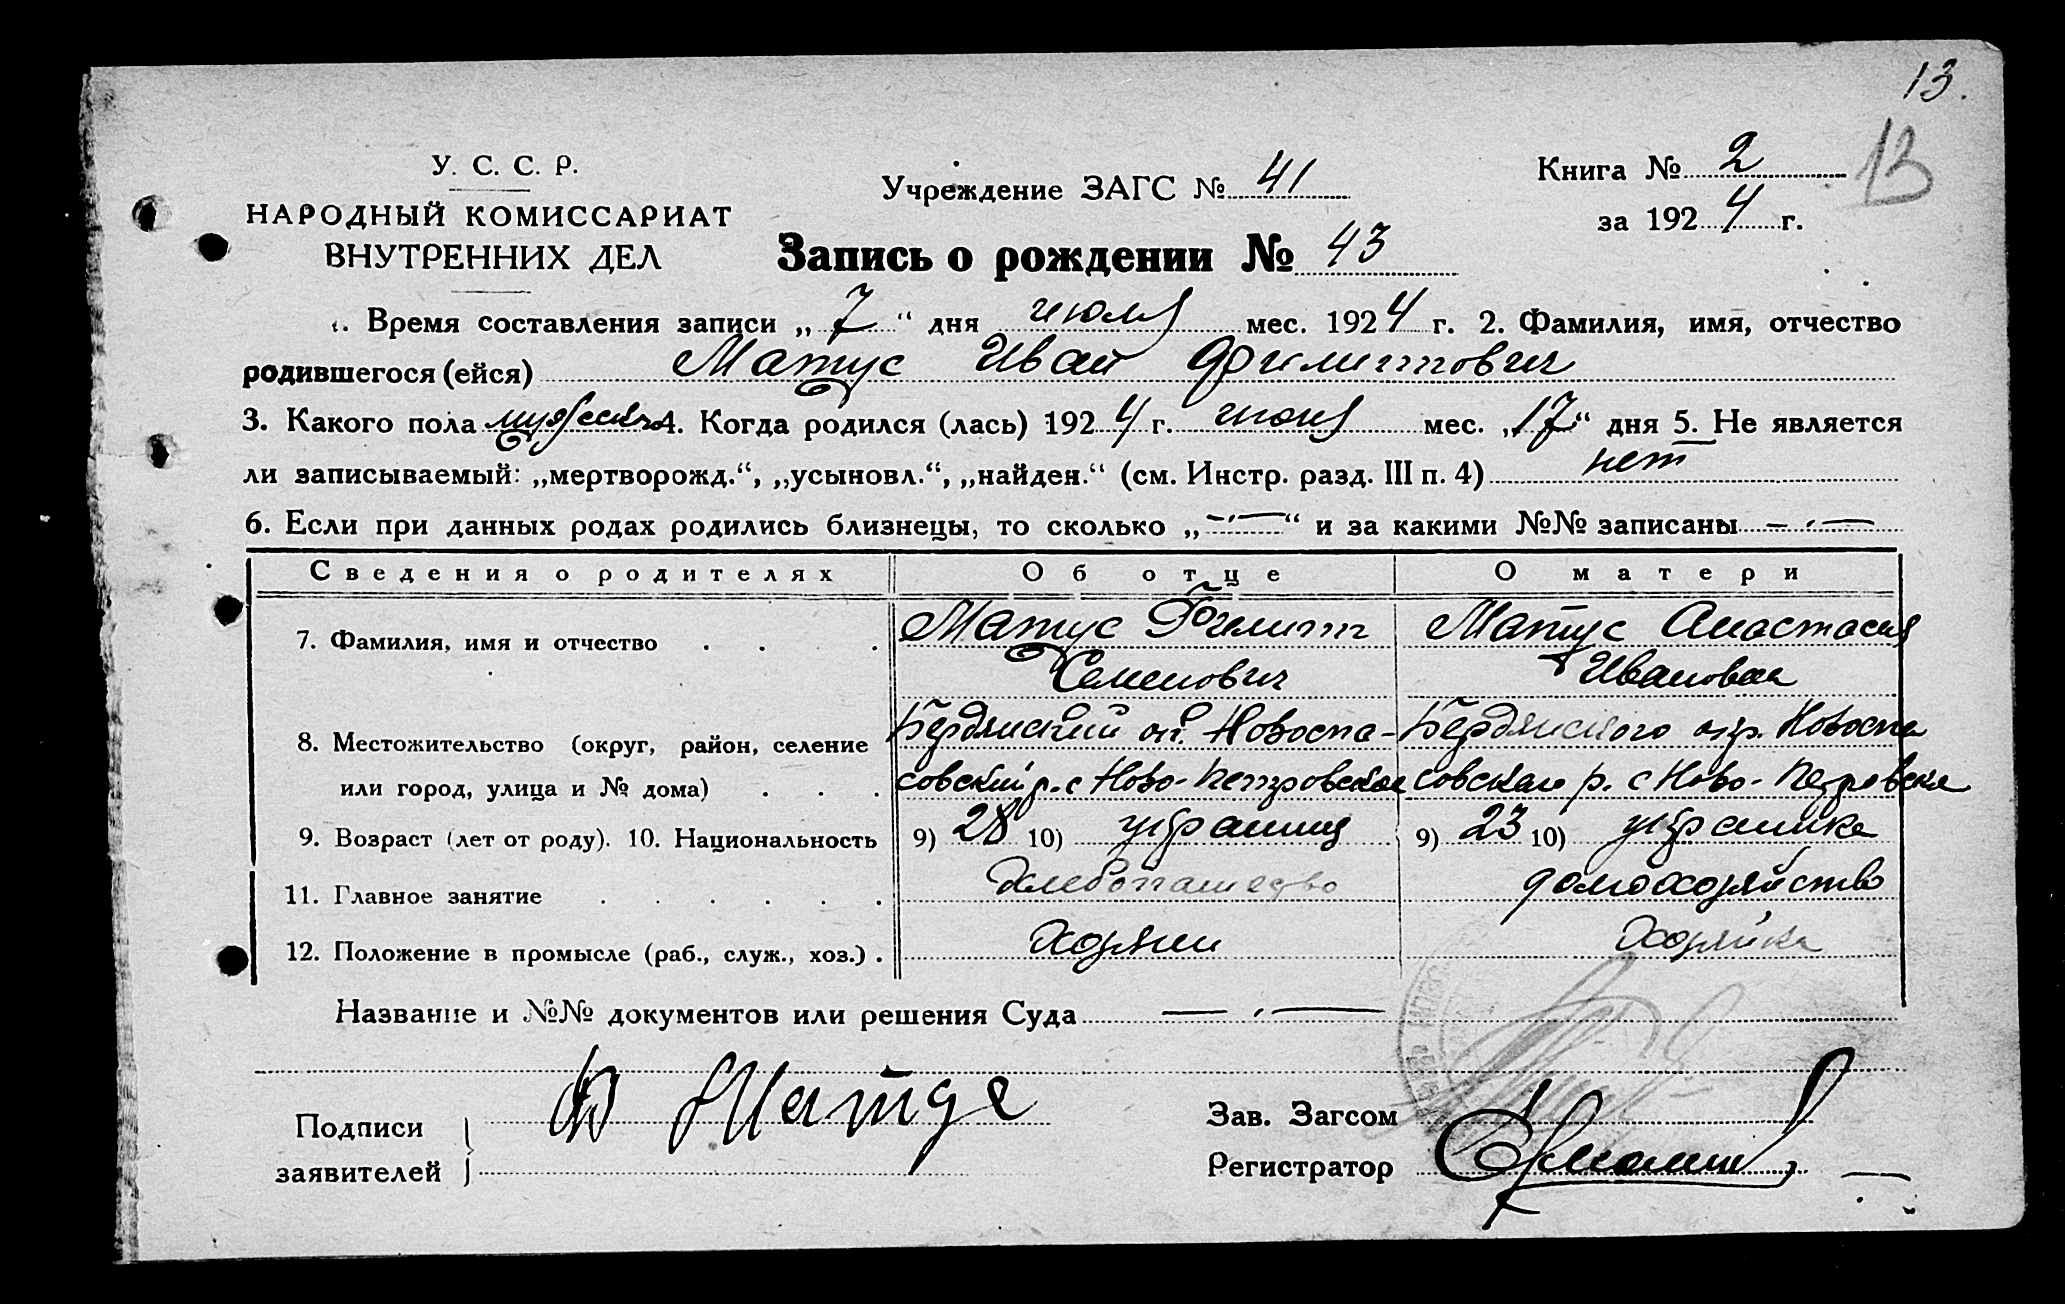 13.
13
У. С. С. Р.
НАРОДНЫЙ КОМИССАРИАТ
ВНУТРЕННИХ ДЕЛ
Учреждение ЗАГС № 41
Книга № 2
за 1924 г.
Запись о рождении № 43
1. Время составления записи „7“ дня июля мес. 1924 г. 2. Фамилия, имя, отчество
родившегося (ейся) Матус Иван Филиппович
3. Какого пола мужеск 4. Когда родился (лась) 1924 г. июня мес. „17“ дня 5. Не является
ли записываемый: „мертворожд.“, „усыновл.“, „найден.“ (см. Инстр. разд. III п. 4) нет
6. Если при данных родах родились близнецы, то сколько „—“ и за какими №№ записаны —
Сведения о родителях Об отце О матери
7. Фамилия, имя и отчество Матус Филипп Матус Анастасия
Семенович Ивановна
Бердянский ок. Новоспа- Бердянского окр. Новоспа
8. Местожительство (округ, район, селение
совский р. с Ново-Петровское совская р. с Ново-Петровске
или город, улица и № дома)
9. Возраст (лет от роду). 10. Национальность 9) 28 10) украинец 9) 23 10) украинка
11. Главное занятие Хлебопашество домохозяйство
12. Положение в промысле (раб., служ., хоз.) Хозяин Хозяйка
Название и №№ документов или решения Суда —
Подписи
заявителей
Ф Матус
Зав. Загсом
Регистратор